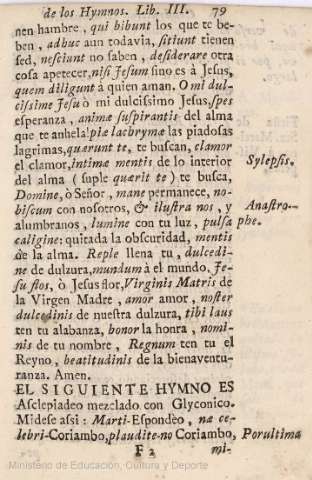 de los Hymnos. Lib. III. 79
nen hambre, qui bibunt los que te be-
ben, adhuc aun todavia, sitiunt tienen
sed, nesciunt no saben, desiderare otra
cosa apetecer, nisi Jesum sino es à Jesus,
quem diligunt à quien aman. O mi dul-
cissime Jesu ò mi dulcissimo Jesus, spes
esperanza, animæ suspirantis del alma
que te anhela! piæ lachrymæ las piadosas
lagrimas, quærunt te, te buscan, clamor
el clamor, intimæ mentis de lo interior
del alma (suple quærit te) te busca,
Sylepsis.
Domine, ò Señor, mane permanece, no-
biscum con nosotros, & ilustra nos, y
Anastro-
alumbranos, lumine con tu luz, pulsa
phe.
caligine: quitada la obscuridad, mentis
de la alma. Reple llena tu, dulcedi-
ne de dulzura, mundum à el mundo. Je-
su flos, ò Jesus flor, Virginis Matris de
la Virgen Madre, amor amor, noster
dulcedinis de nuestra dulzura, tibi laus
ten tu alabanza, honor la honra, nomi-
nis de tu nombre, Regnum ten tu el
Reyno, beatitudinis de la bienaventu-
ranza. Amen.
EL SIGUIENTE HYMNO ES
Asclepiadeo mezclado con Glyconico.
Midese assi: Marti-Espondeo, na ce-
lebri-Coriambo, plaudite-no Coriambo,
Porultima
F 2 mi-
Ministerio de Educación, Cultura y Deporte